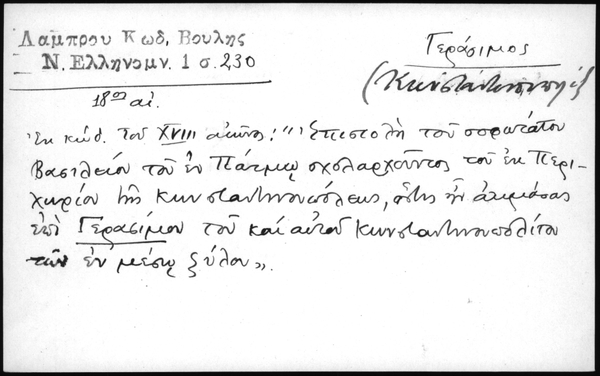 Λαμπρου Κωδ. Βουλης
Ν. Ελληνομν. 1 σ. 230
Γεράσιμος
(Κωνσταντινουπολί
18ου αἰ.
Ἐκ κώδ. τοῦ XVIII αἰῶνος: "Ἐπιστολὴ τοῦ σοφωτάτου
Βασιλείου τοῦ ἐν Πάτμῳ σχολαρχοῦντος τοῦ ἐκ Περι-
χωρίου τῆς Κωνσταντινουπόλεως, ὅστις ἦν ἀκμάσας
ἐπὶ Γερασίμου τοῦ καὶ αὐτοῦ Κωνσταντινουπολίτου
τῶν ἐν μέσῳ ξύλου».